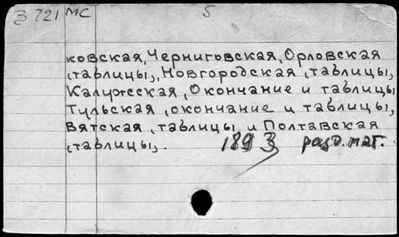 Э 721 МС 5
ковская, Черниговская, Орловская
(таблицы), Новгородская (таблицы),
Калужская (окончание и таблицы
Тульская (окончание и таблицы),
Вятская (таблицы и Полтавская
(таблицы). 1893 разд. паг.